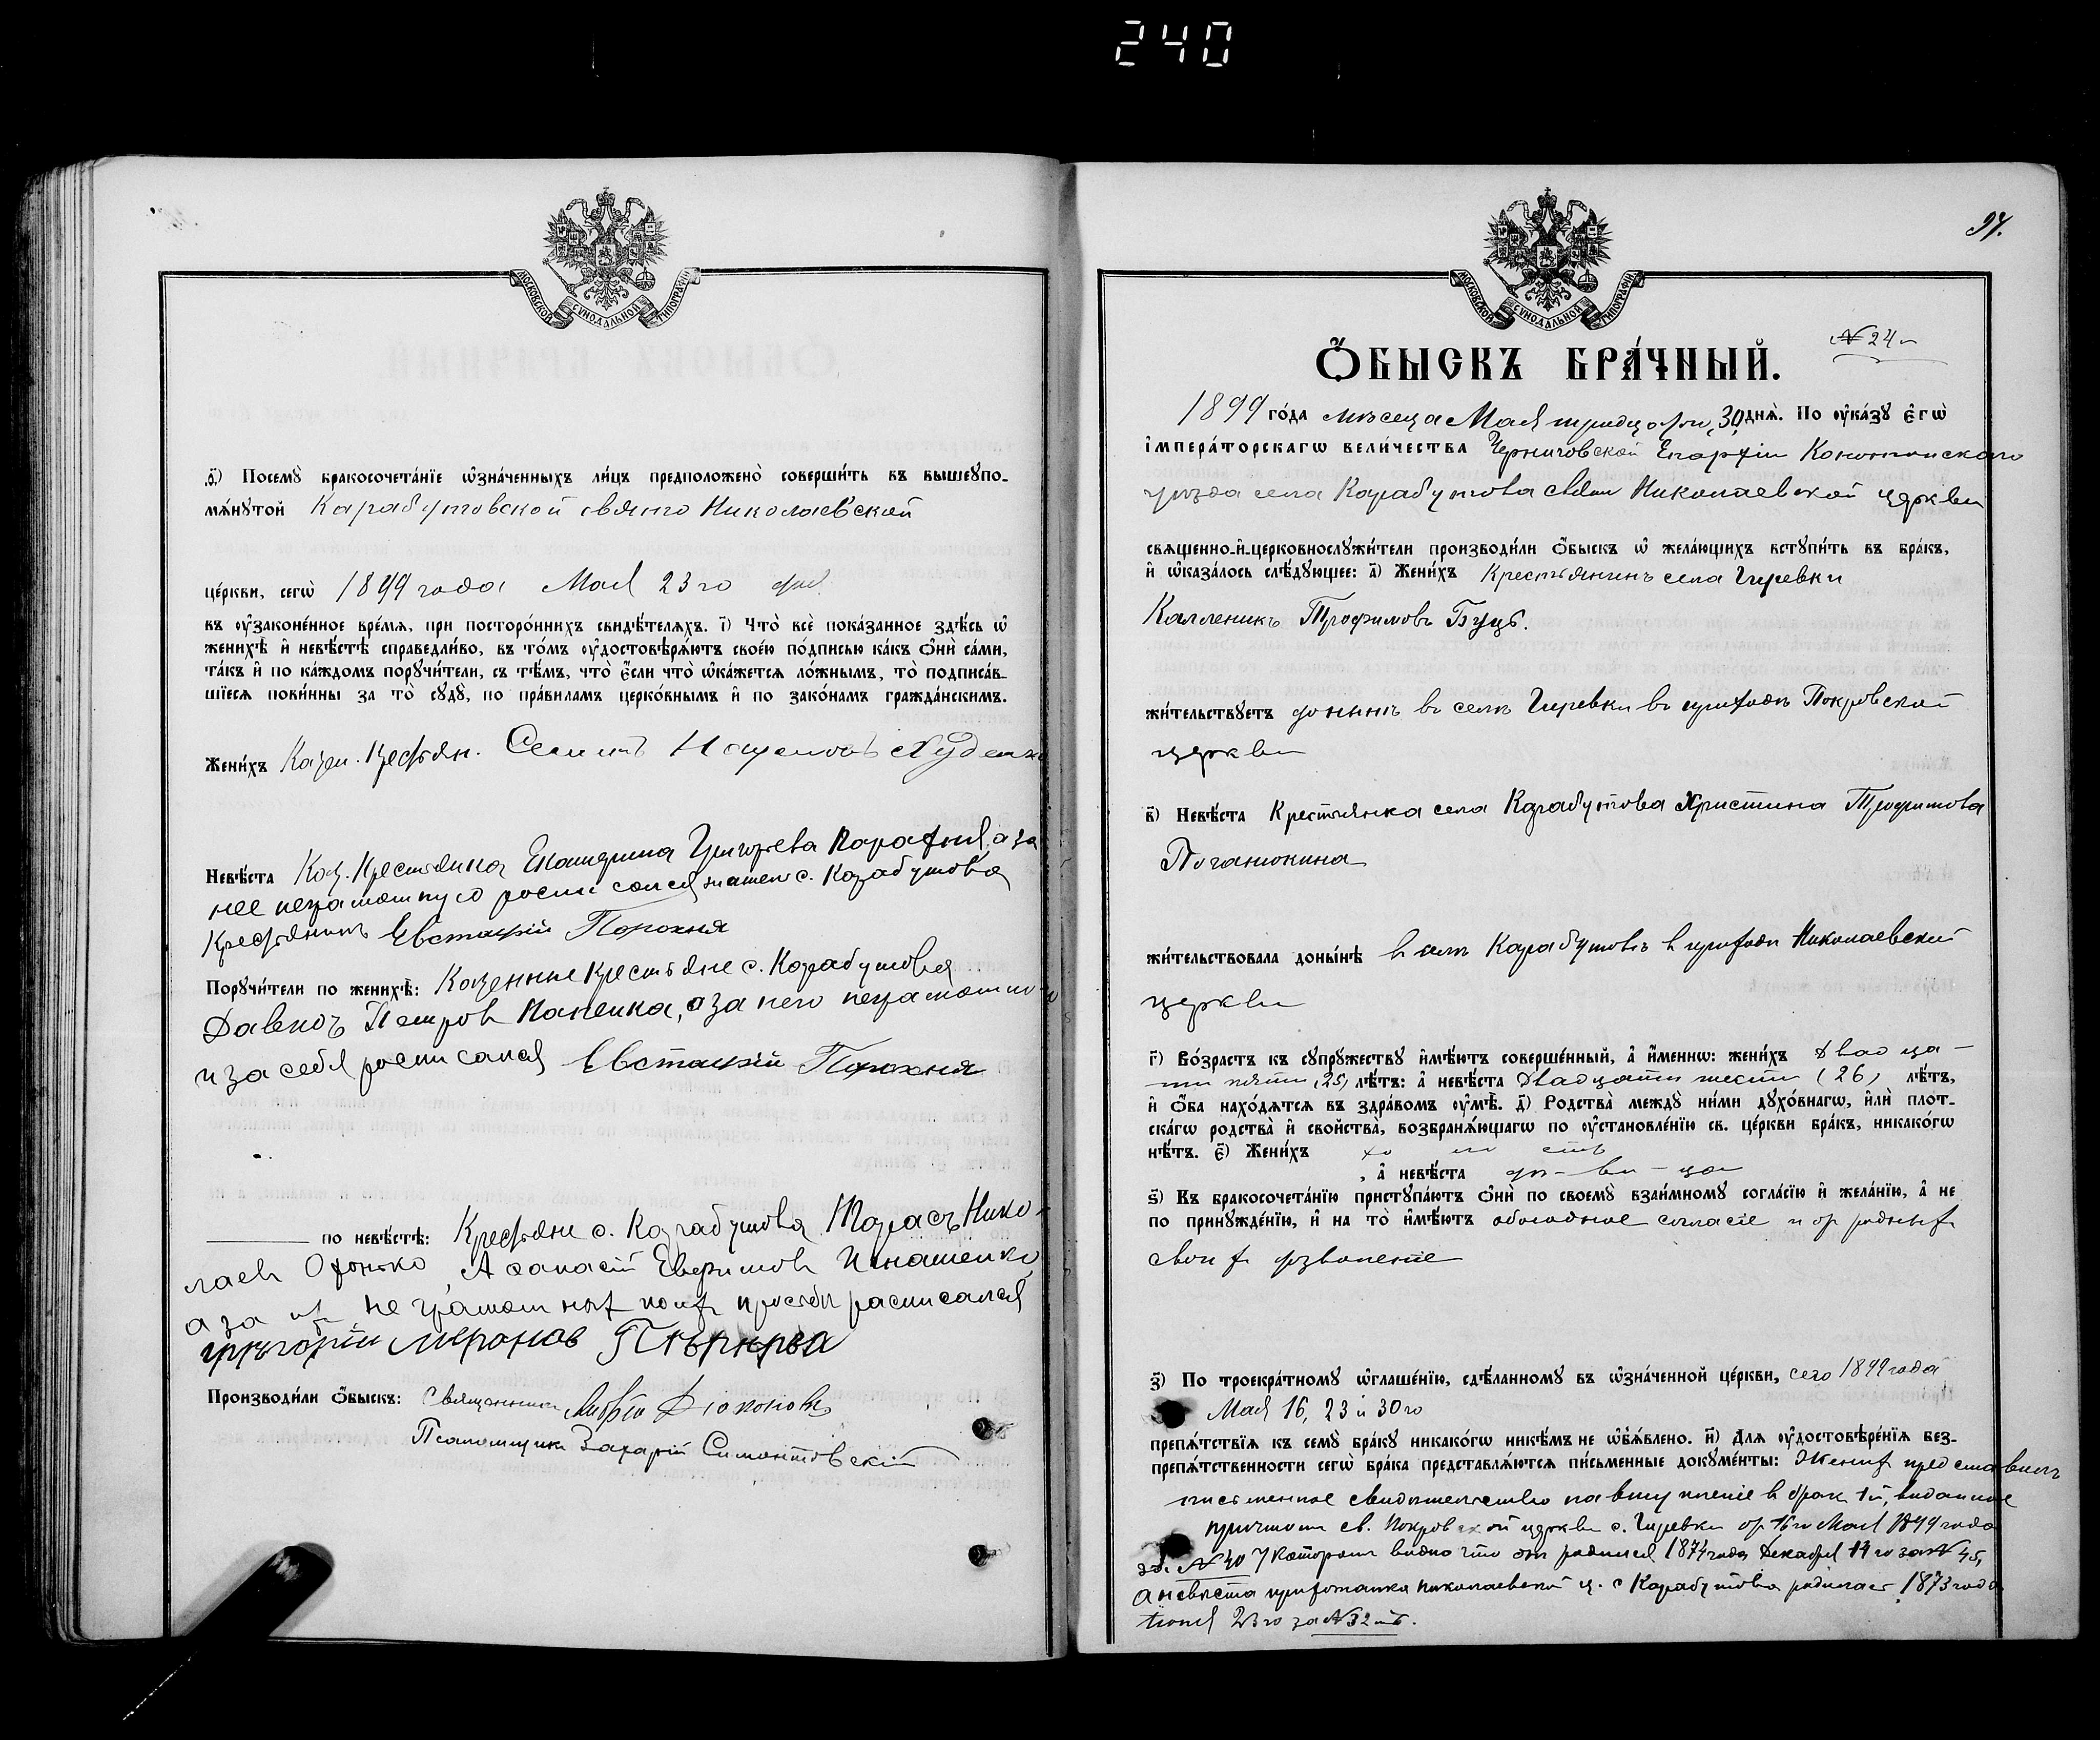 240
МОСКОВСКОЙ СѴНОДАЛЬНОЙ ТИПОГРАФІИ
д҃і) Посемꙋ̀ бракосочета́нїе ѡ҆зна́ченныхъ ли́цъ предположено̀ соверши́ть въ вышеꙋпо-
мѧ́нꙋтой Карабутовской свято Николаевской
це́ркви, сегѡ̀ 1899 года Мая 23го дня
въ ᲂу҆законе́нное вре́мѧ, при посторо́ннихъ свидѣ́телѧхъ. і҃) Что̀ всѐ пока́занное здѣ́сь ѡ҆
женихѣ̀ и҆ невѣ́стѣ справедли́во, въ то́мъ ᲂу҆достовѣрѧ́ютъ свое́ю по́дписью ка́къ ѻ҆нѝ са́ми,
та́къ и҆ по ка́ждомъ порꙋчи́тели, съ тѣ́мъ, что̀ є҆́сли что̀ ѡ҆ка́жетсѧ ло́жнымъ, то̀ подписа́в-
шїесѧ пови́нны за то̀ сꙋдꙋ̀, по пра́виламъ церко́внымъ и҆ по зако́намъ гражда́нскимъ.
Жени́хъ Казен. Крестьян.
Невѣ́ста Каз. Крестьянка Екатерина Григорьева а за
нее неграмотную с. Карабутова
Крестьянинъ Евстафій Порохня
Порꙋчи́тели по женихѣ̀: Казенные Крестьяне с. Карабутова
Петров а за него неграмотного
и за себя росписался Евстафій Порохня
по невѣ́стѣ: Крестьяне с. Карабутова Тарасъ Нико-
лаев Афанасій Ефимов Игнатенко,
а за их неграмотных по их просьбѣ расписался
григорій миронов
Производи́ли ѻ҆́быскъ: Священник
Псаломщикъ Захарій Симонтовскій
97.
МОСКОВСКОЙ СѴНОДАЛЬНОЙ ТИПОГРАФІИ
№ 24
Ѻ҆́БЫСКЪ БРА́ЧНЫЙ.
1899 го́да мѣсяца Мая тридцатого, 30 днѧ̀. По ᲂу҆ка́зꙋ є҆гѡ̀
і҆мпера́торскагѡ вели́чества Черниговской Епархіи Конотопского
уѣзда села Карабутова свято Николаевской церкви
свѧщенно-и҆-церковнослꙋжи́тели производи́ли ѻ҆́быскъ ѡ҆ жела́ющихъ встꙋпи́ть въ бра́къ,
и҆ ѡ҆каза́лось слѣ́дꙋющее: а҃) Жени́хъ Крестьянинъ села Гиревки
Калленикъ Трофимовъ Буць.
жи́тельствꙋетъ донынѣ в селѣ Гиревки в приходѣ Покровской
церкви
в҃) Невѣ́ста Крестьянка села Карабутова Христина Трофимова
жи́тельствовала доны́нѣ в селѣ Карабутовѣ в приходѣ Николаевской
церкви
г҃) Во́зрастъ къ сꙋпрꙋ́жествꙋ и҆мѣ́ютъ соверше́нный, а҆ и҆́меннѡ: жени́хъ двадца-
ти пяти (25) лѣ́тъ: а҆ невѣ́ста двадцати шести (26) лѣ́тъ,
и҆ ѻ҆́ба нахо́дѧтсѧ въ здра́вомъ ᲂу҆мѣ̀. д҃) Родства̀ междꙋ̀ ни́ми дꙋхо́внагѡ, и҆лѝ пло́т-
скагѡ родства̀ и҆ сво́йства, возбранѧ́ющагѡ по ᲂу҆становле́нїю св. це́ркви бра́къ, никако́гѡ
нѣ́тъ. є҃) Жени́хъ хо ло стъ
, а҆ невѣ́ста дѣ-ви-ца
ѕ҃) Къ бракосочета́нїю пристꙋпа́ютъ ѻ҆нѝ по своемꙋ̀ взаи́мномꙋ согла́сїю и҆ жела́нїю, а҆ не
по принꙋжде́нїю, и҆ на то̀ и҆мѣ́ютъ обоюдное согласіе и от родных
своих дозволеніе
з҃) По троекра́тномꙋ ѡ҆глаше́нїю, сдѣ́ланномꙋ въ ѡ҆зна́ченной це́ркви, сего 1899 года
Мая 16, 23 и 30го
препѧ́тствїѧ къ семꙋ̀ бра́кꙋ никако́гѡ никѣ́мъ не ѡ҆б̾ѧ́влено. и҃) Длѧ ᲂу҆достовѣре́нїѧ без-
препѧ́тственности сегѡ̀ бра́ка представлѧ́ютсѧ пи́сьменные докꙋме́нты: Жених представилъ
письменное свидѣтельство на вступленіе в брак 1й, виданное
причтом св. Покровской церкви с. Гиревки от 16го Мая 1899 года
за № 40 У котором видно что он родился 1874 года Декабря 14го за № 45,
а невѣста прихожанка Николаевской ц. с Карабутова родилась 1873 года
Іюля 23го за № 32